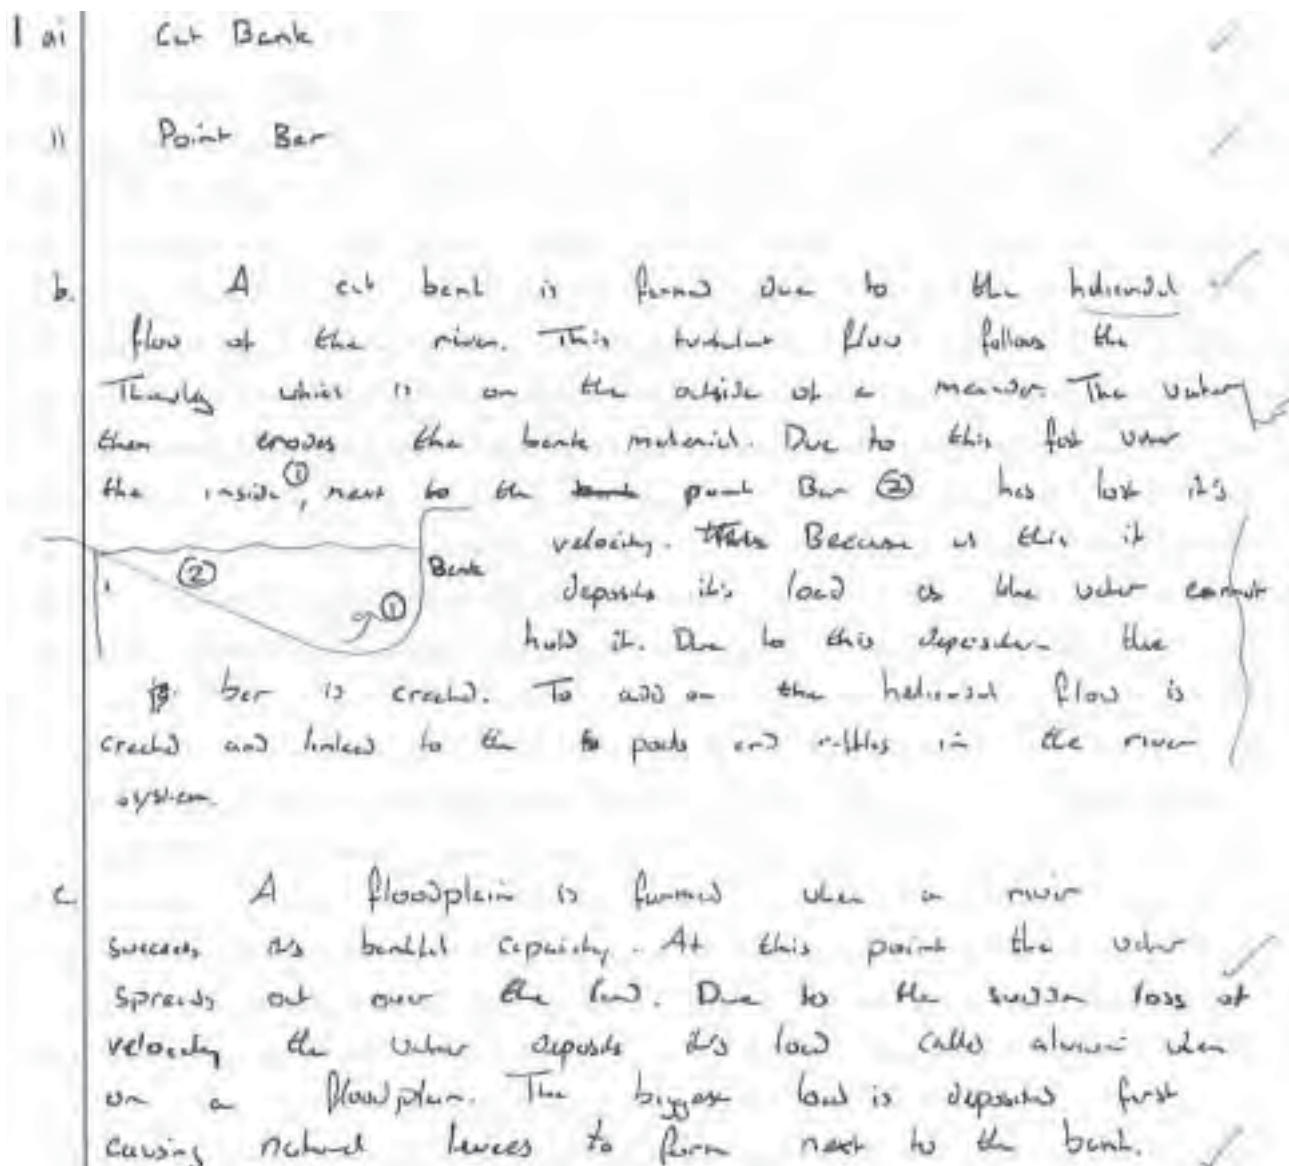 1 ai Cut Bank
ii Point Bar
b. A cut bank is formed due to the helicoidal
flow of the river. This turbulent flow follows the
which is on the outside of a meander. The water
then erodes the bank material. Due to this fast water
the inside ①, next to the point Bar ② has lost it's
velocity. Because of this it
② Bank
① deposits it's load as the water cannot
hold it. Due to this deposition the
bar is created. To add on the helicoidal flow is
created and linked to the pools and riffles in the river
system.
c A floodplain is formed when a river
its bankful capacity. At this point the water
spreads out over the land. Due to the sudden loss of
velocity the water deposits it's load called when
on a floodplain. The biggest load is deposited first
causing natural levees to form next to the bank.